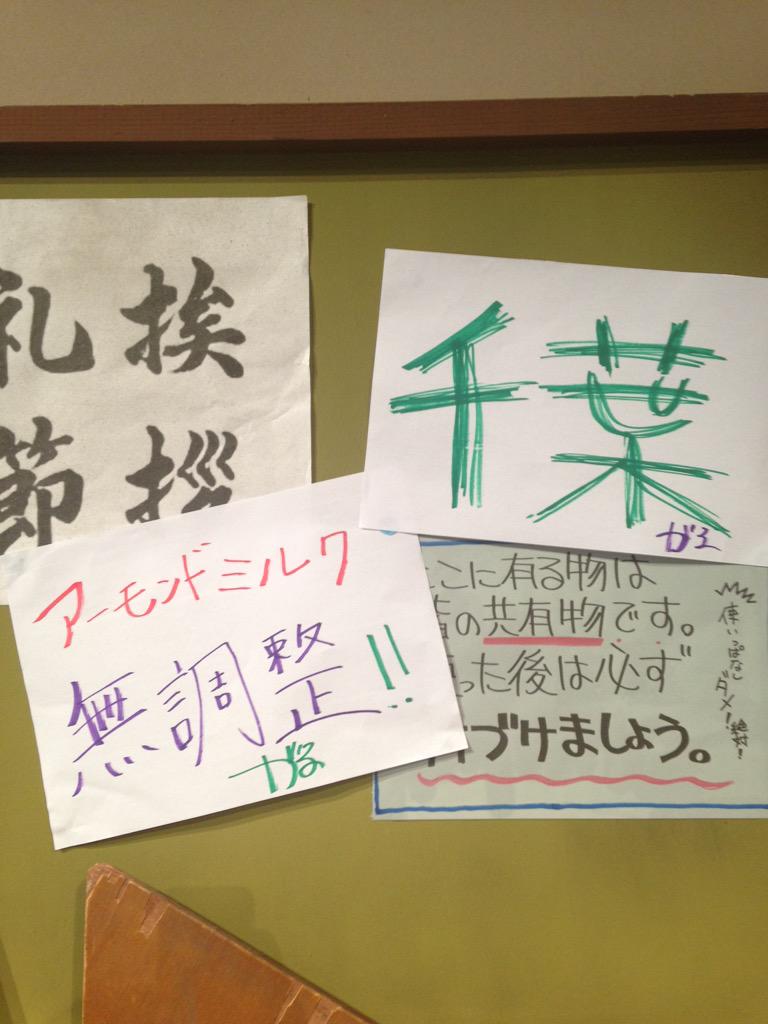 礼 挨
節 拶
千葉
がる
アーモンドミルク
無調整!!
がる
こに有る物は
皆の共有物です。
った後は必ず
づけましょう。
使いっぱなし
ダメ!絶対!